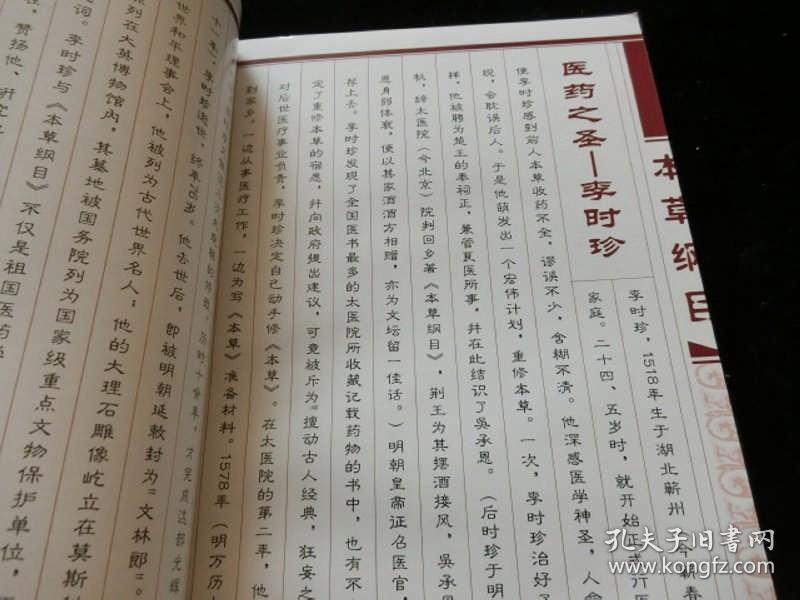 本草纲目
医药之圣—李时珍
李时珍，1518年生于湖北蕲州
家庭。二十四、五岁时，就开始正式行医
使李时珍感到前人本草收药不全，谬误不少，含糊不清。他深感医学神圣，人命
现，会耽误后人。于是他萌发出一个宏伟计划，重修本草。一次，李时珍治好了
样，他被聘为楚王的奉祠正，兼管良医所事，并在此结识了吴承恩。（后时珍于明
秋，辞太医院（今北京）院判回乡著《本草纲目》，荆王为其摆酒接风，吴承恩
恩身弱体衰，便以其家酒酒方相赠，亦为文坛留一佳话。）明朝皇帝征召医官，
荐上去。李时珍发现了全国医书最多的太医院所收藏记载药物的书中，也有不
定了重修本草的宿愿，并向政府提出建议，可竟被斥为“擅动古人经典，狂妄之
对后世医疗事业负责，李时珍决定自己动手修《本草》。在太医院的第二年，他
到家乡。一边从事医疗工作，一边为写《本草》准备材料。1578年（明万历
十一卷，李时珍逝世，终年75岁。他去世后，即被明朝延敕封为“文林郎”。
世界和平理事会上，他被列为古代世界名人；他的大理石雕像屹立在莫斯
陈列在大英博物馆内，其墓地被国务院列为国家级重点文物保护单位，
词。李时珍与《本草纲目》不仅是祖国医药学
赞扬他、研究
孔夫子旧书网
www.kongfz.com